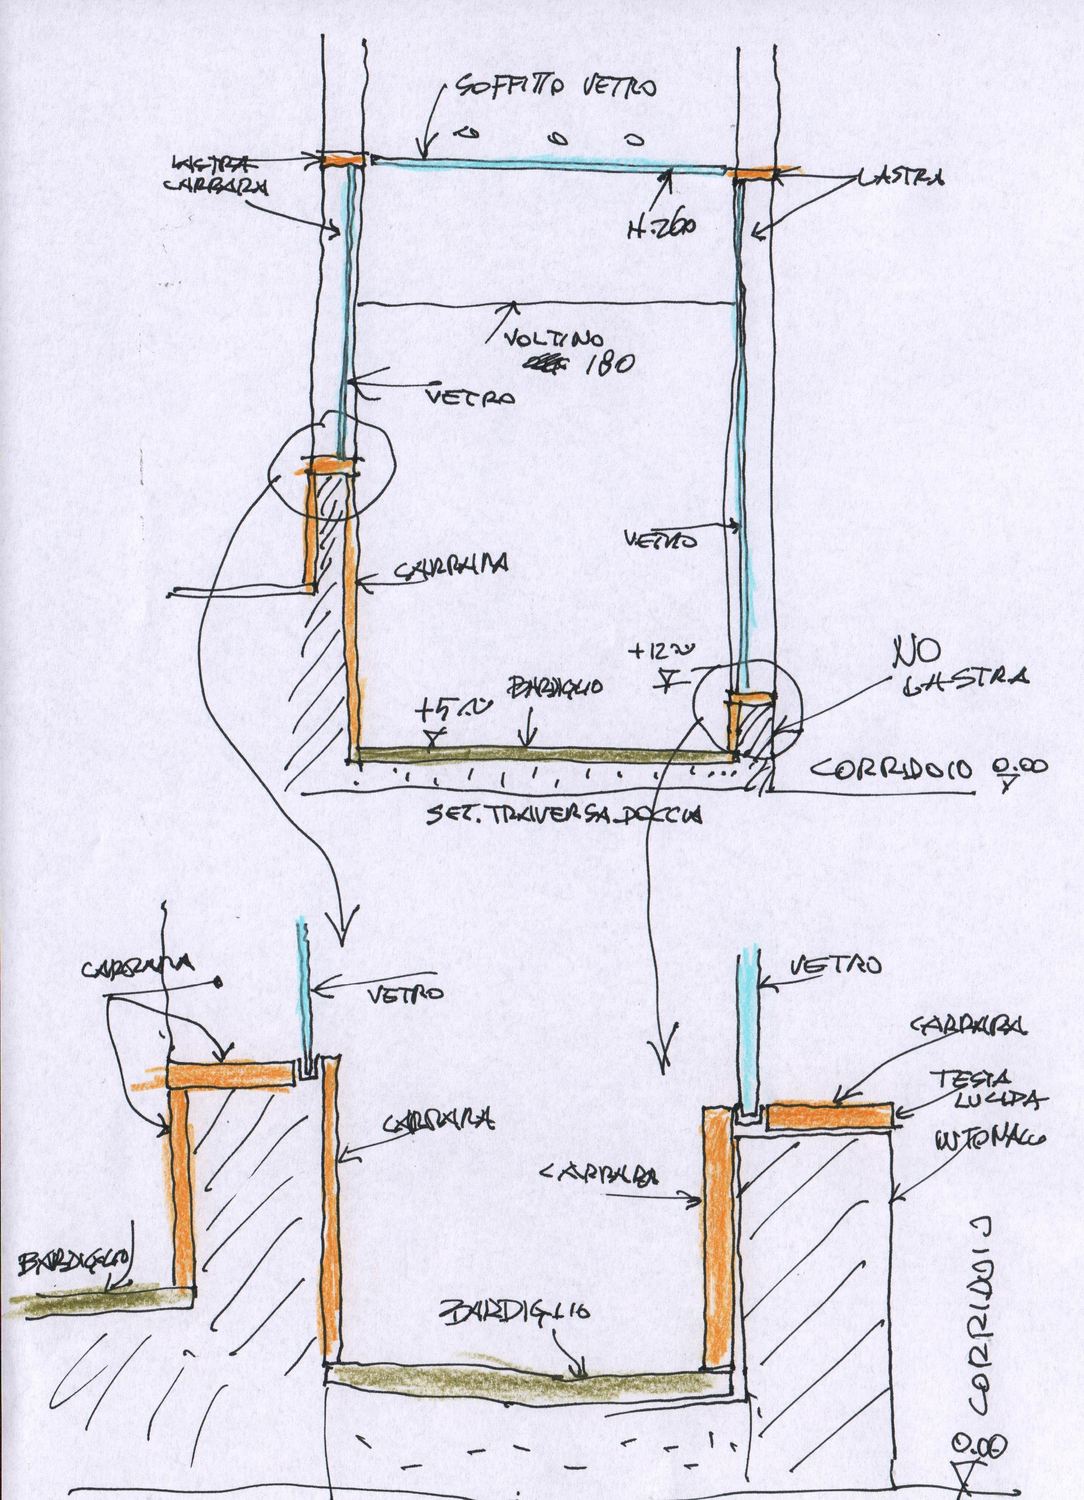 SOFFITTO VETRO
LASTRA
CARRARA
LASTRA
H.260
VOLTINO
180
VETRO
VETRO
CARRARA
+12
NO
LASTRA
BARDIGLIO
+5
CORRIDOIO 0.00
SEZ. TRAVERSA DOCCIA
CARRARA
VETRO
VETRO
CARRARA
TESTA
LUCIDA
INTONACO
CARRARA
CARRARA
BARDIGLIO
BARDIGLIO
CORRIDOIO
0.00